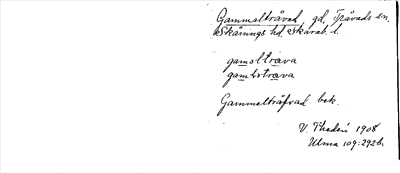 Gammalträvad, gd, Trävads sn.
Skånings hd. Skarab. l.
gamaltrava
gambstrava
Gammalträfvad bek.
V. Thedin 1908
Ulma 109:292 b.